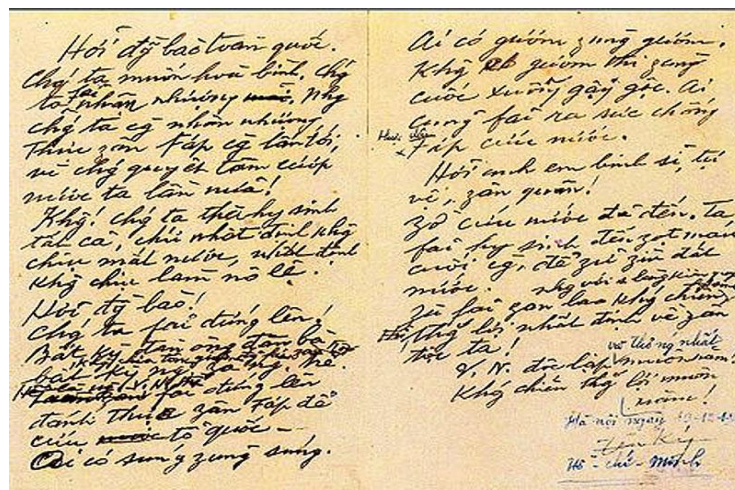 Hỡi đg̀ bào toàn quốc.
Chǵ ta muốn hoà bình, chǵ
ta fải nhân nhượng. Nhg
chǵ ta cg̀ nhân nhượng,
Thực zân Fáp cg̀ lấn tới,
vì chǵ quyết tâm cướp
nước ta lần nữa!
Khg! Chǵ ta thà hy sinh
tất cả, chứ nhất định khg
chịu mất nước, nhất định
khg chịu làm nô lệ.
Hỡi đg̀ bào!
Chǵ ta fải đứng lên!
Bất kỳ đàn ông đàn bà
bất kỳ ng. già ng. trẻ.
fải đứng lên
đánh thực zân Fáp để
cứu tổ quốc -
Ai có súng zùng súng.
Ai có gươm zùng gươm.
Khg có gươm thì zùng
cuốc xuổng gậy gộc. Ai
cũng fải ra sức chống
Fáp cứu nước.
Hỡi anh em binh sĩ, tự
vệ, zân quân!
Zờ cứu nước đã đến. Ta
fải hy sinh đến zọt máu
cuối cg̀, để zữ zìn đất
nước.
Zù fải gian lao khg chiến
nhg với 1 lòng kiên
Thg lợi nhất định về zân
tộc ta!
V.N. độc lập và thống nhất muôn năm!
Khg chiến thg lợi muôn
năm!
Hà nội ngày 19-12-
Hồ-chí-Minh